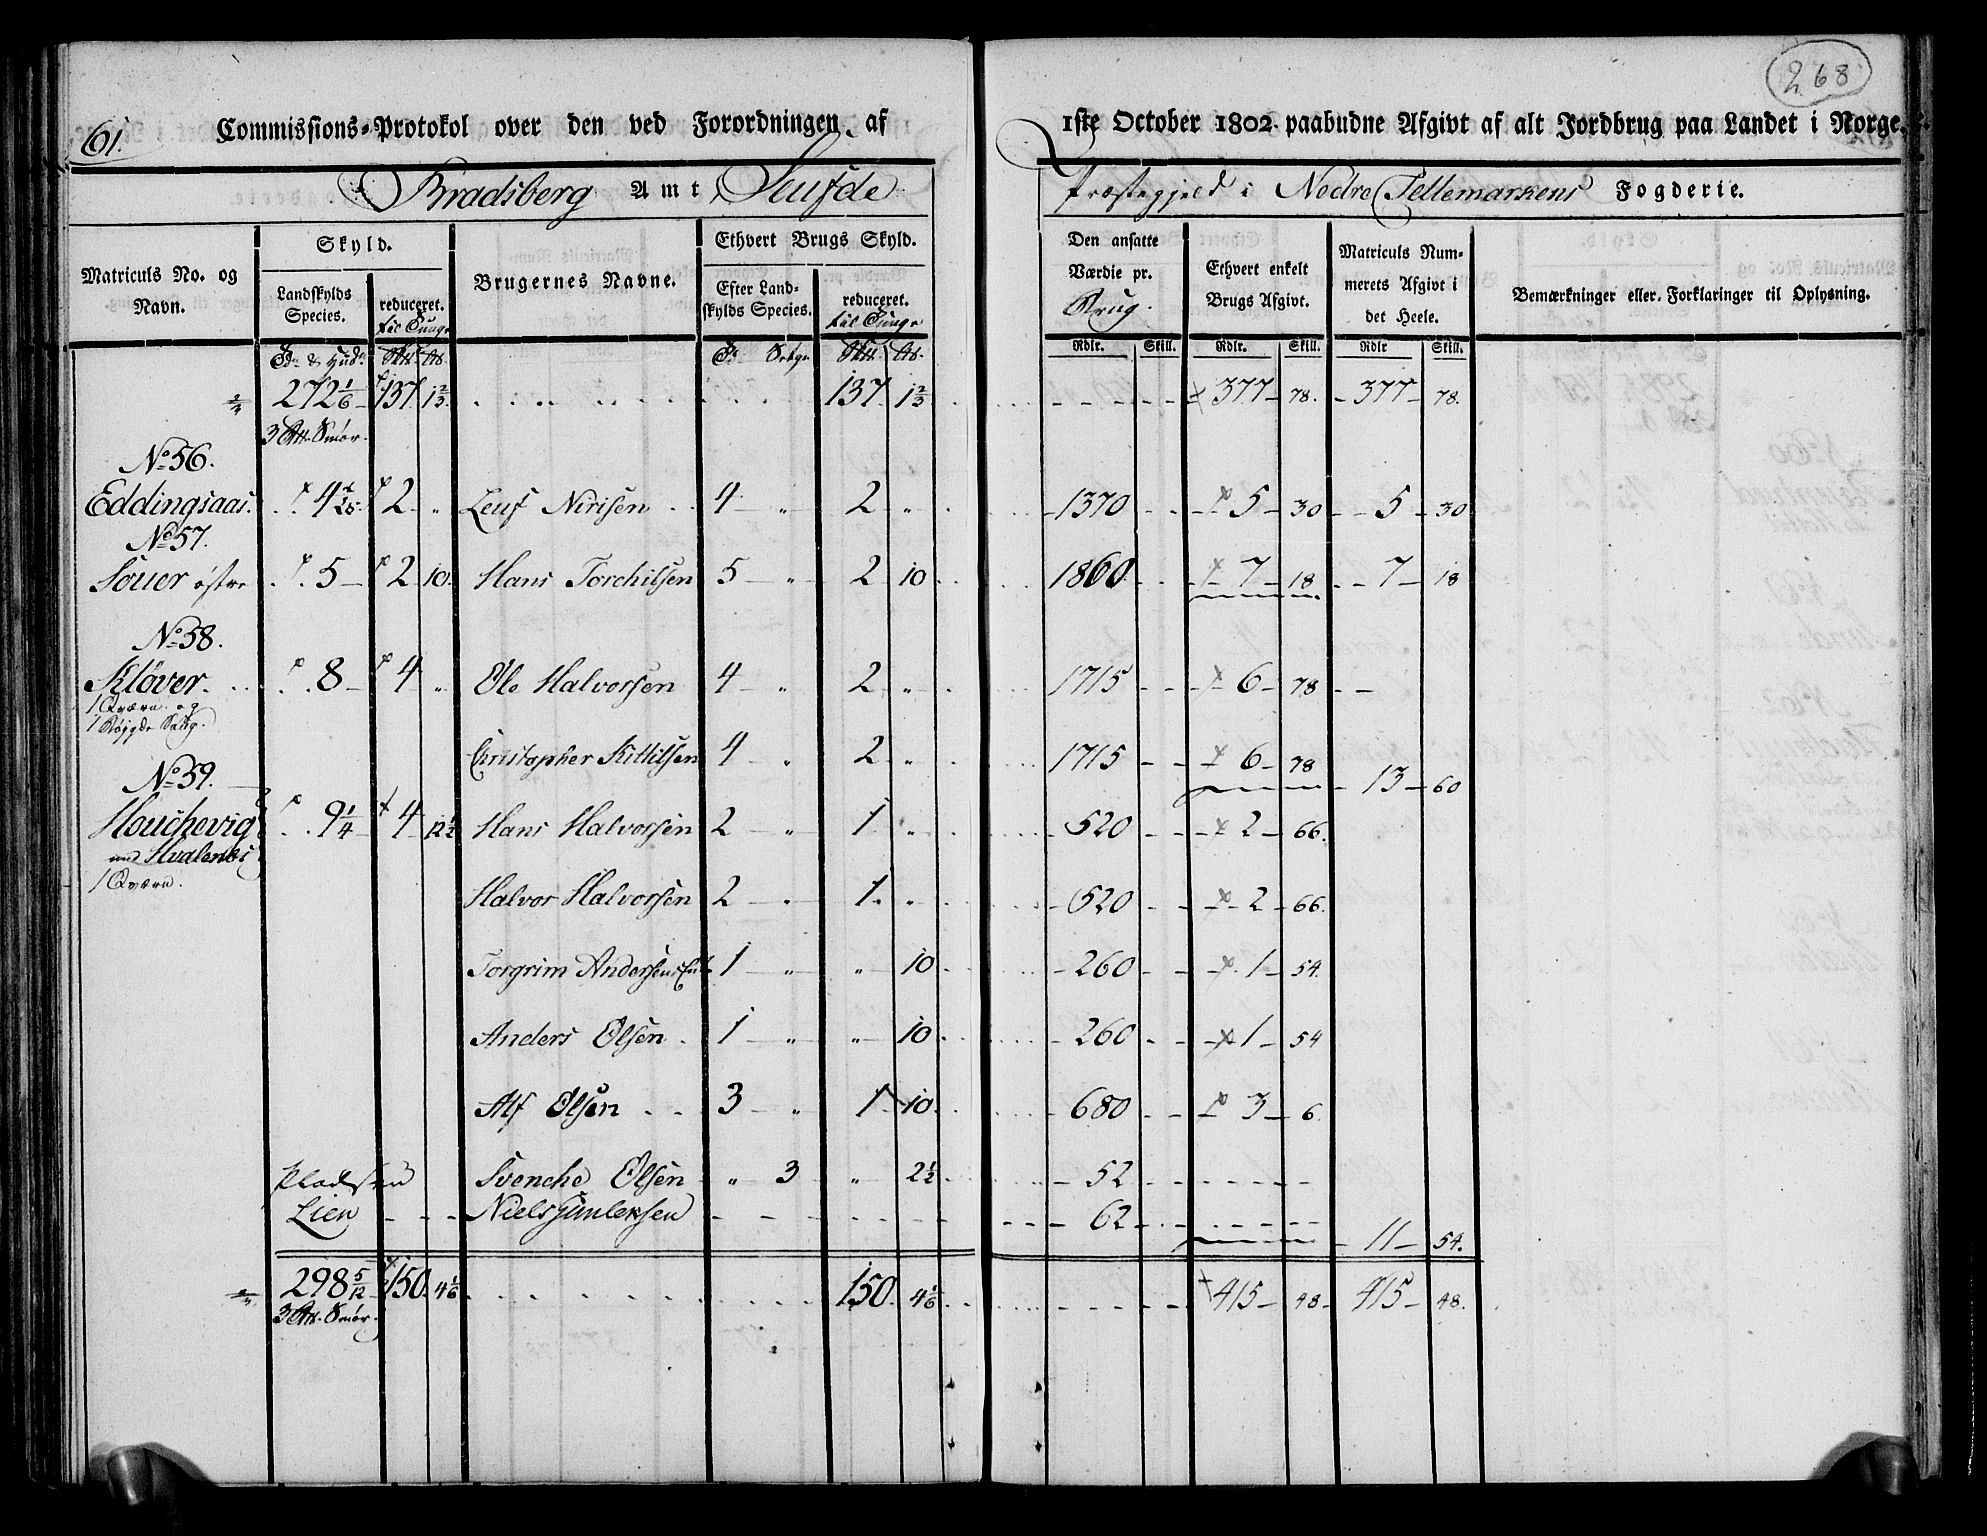 268
61. Commissions-Protokol over den ved Forordningen af 1ste October 1802 paabudne Afgivt af alt Jordbrug paa Landet i Norge.
Bradsberg Amt, Seufde Præstegjeld i Nedre Tellemarkens Fogderie.
Matriculs No. og Navn. Skyld. Brugernes Navne. Ethvert Brugs Skyld. Den ansatte Værdie pr. Brug. Ethvert enkelt Brugs Afgivt. Matriculs Nummerets Afgivt i det Heele. Bemærkninger eller Forklaringer til Oplysning.
Landskylds Species. reduceret. til Tunge Efter Landskylds Species. reduceret. til Tunge
Rdlr. Skill. Rdlr. Skill. Rdlr Skill.
272 1/6 137. 1 2/3 137. 1 2/3 377 78. 377 78.
3 Smør.
No 56.
Eddingsaas. 4 2 " Leuf Nirisen 4 2 " 1370 5 30 5 30
No 57.
Souer østre 5 2 10. Hans Torchilsen 5 " 2 10 1860 7 18 7 18
No 58.
Kløver. 8 4 " Ole Halvorsen 4 " 2 " 1715 6 78
1 Qværn og
1 Bøygde Saug.
Christopher Kittilsen 4 " 2 " 1715 6 78 13 60
No 59.
Houchevig 9 1/4 4 12 1/2 Hans Halvorsen 2 " 1 " 520 2 66.
med Hvalenes
1 Qværn.
Halvor Halvorsen 2 " 1. " 520 2 66.
Torgrim Andersens 1 " " 10 260 1 54.
Anders Olsen 1 " " 10. 260 1 54
Alf Olsen 3 " 1 10. 680 3 6.
Pladsen Svenche Olsen " 3 " 2 1/2 52
Lien Niels 62 11 54.
298 5/12 150. 4 1/6 150. 4 1/6 415 48 415 48.
3 Smør.